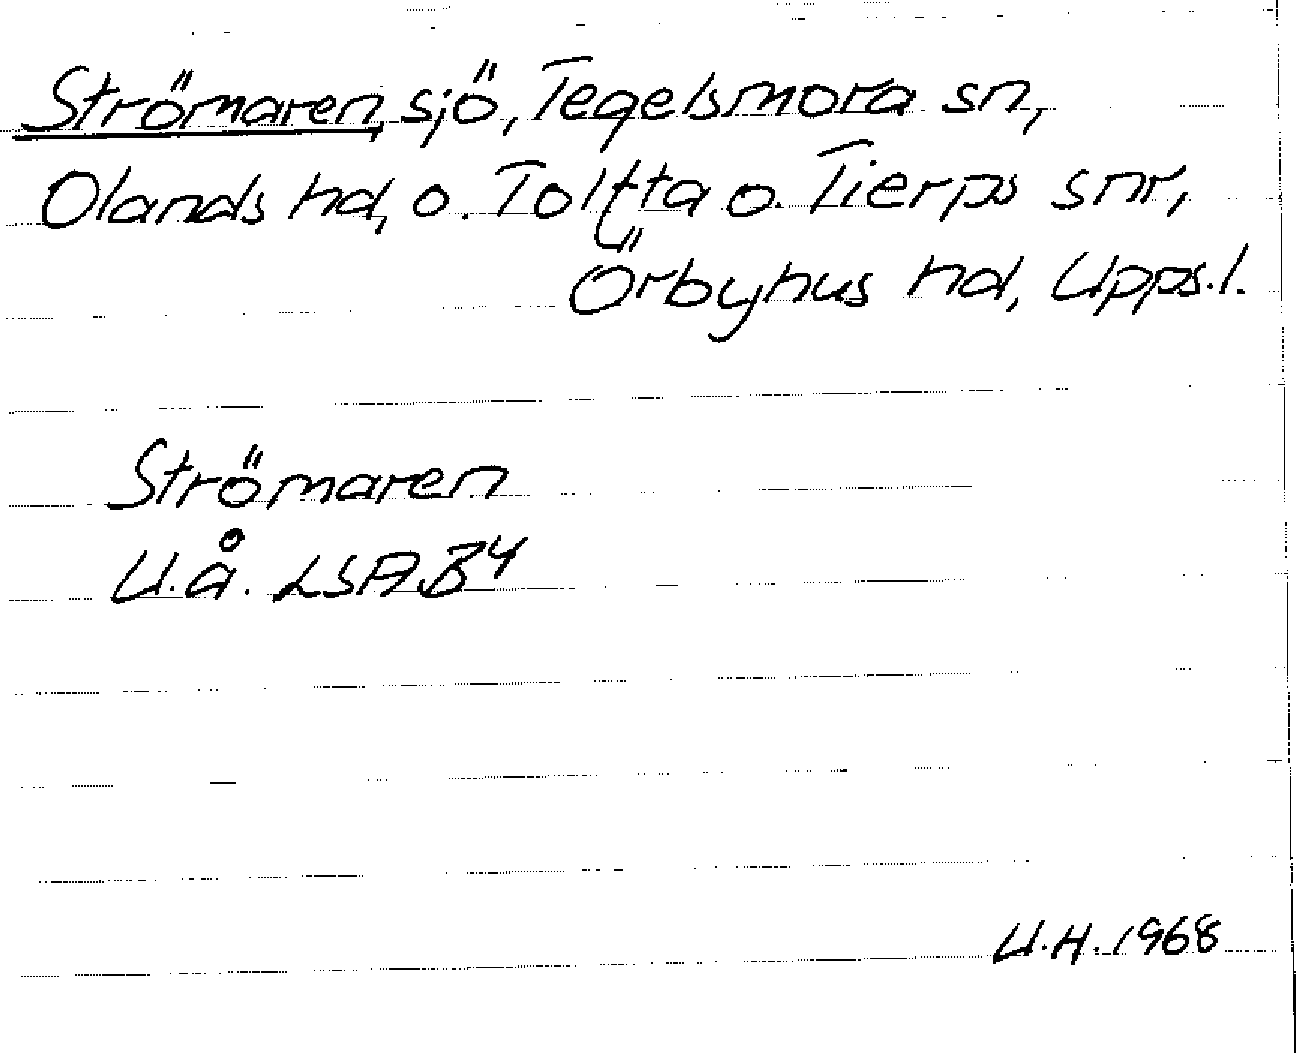 Strömaren, sjö, Tegelsmora sn,
Olands hd, o. Tolfta o. Tierps snr,
Örbyhus hd, Upps.l.
Strömaren
U.å. LSA B4
U.H. 1968